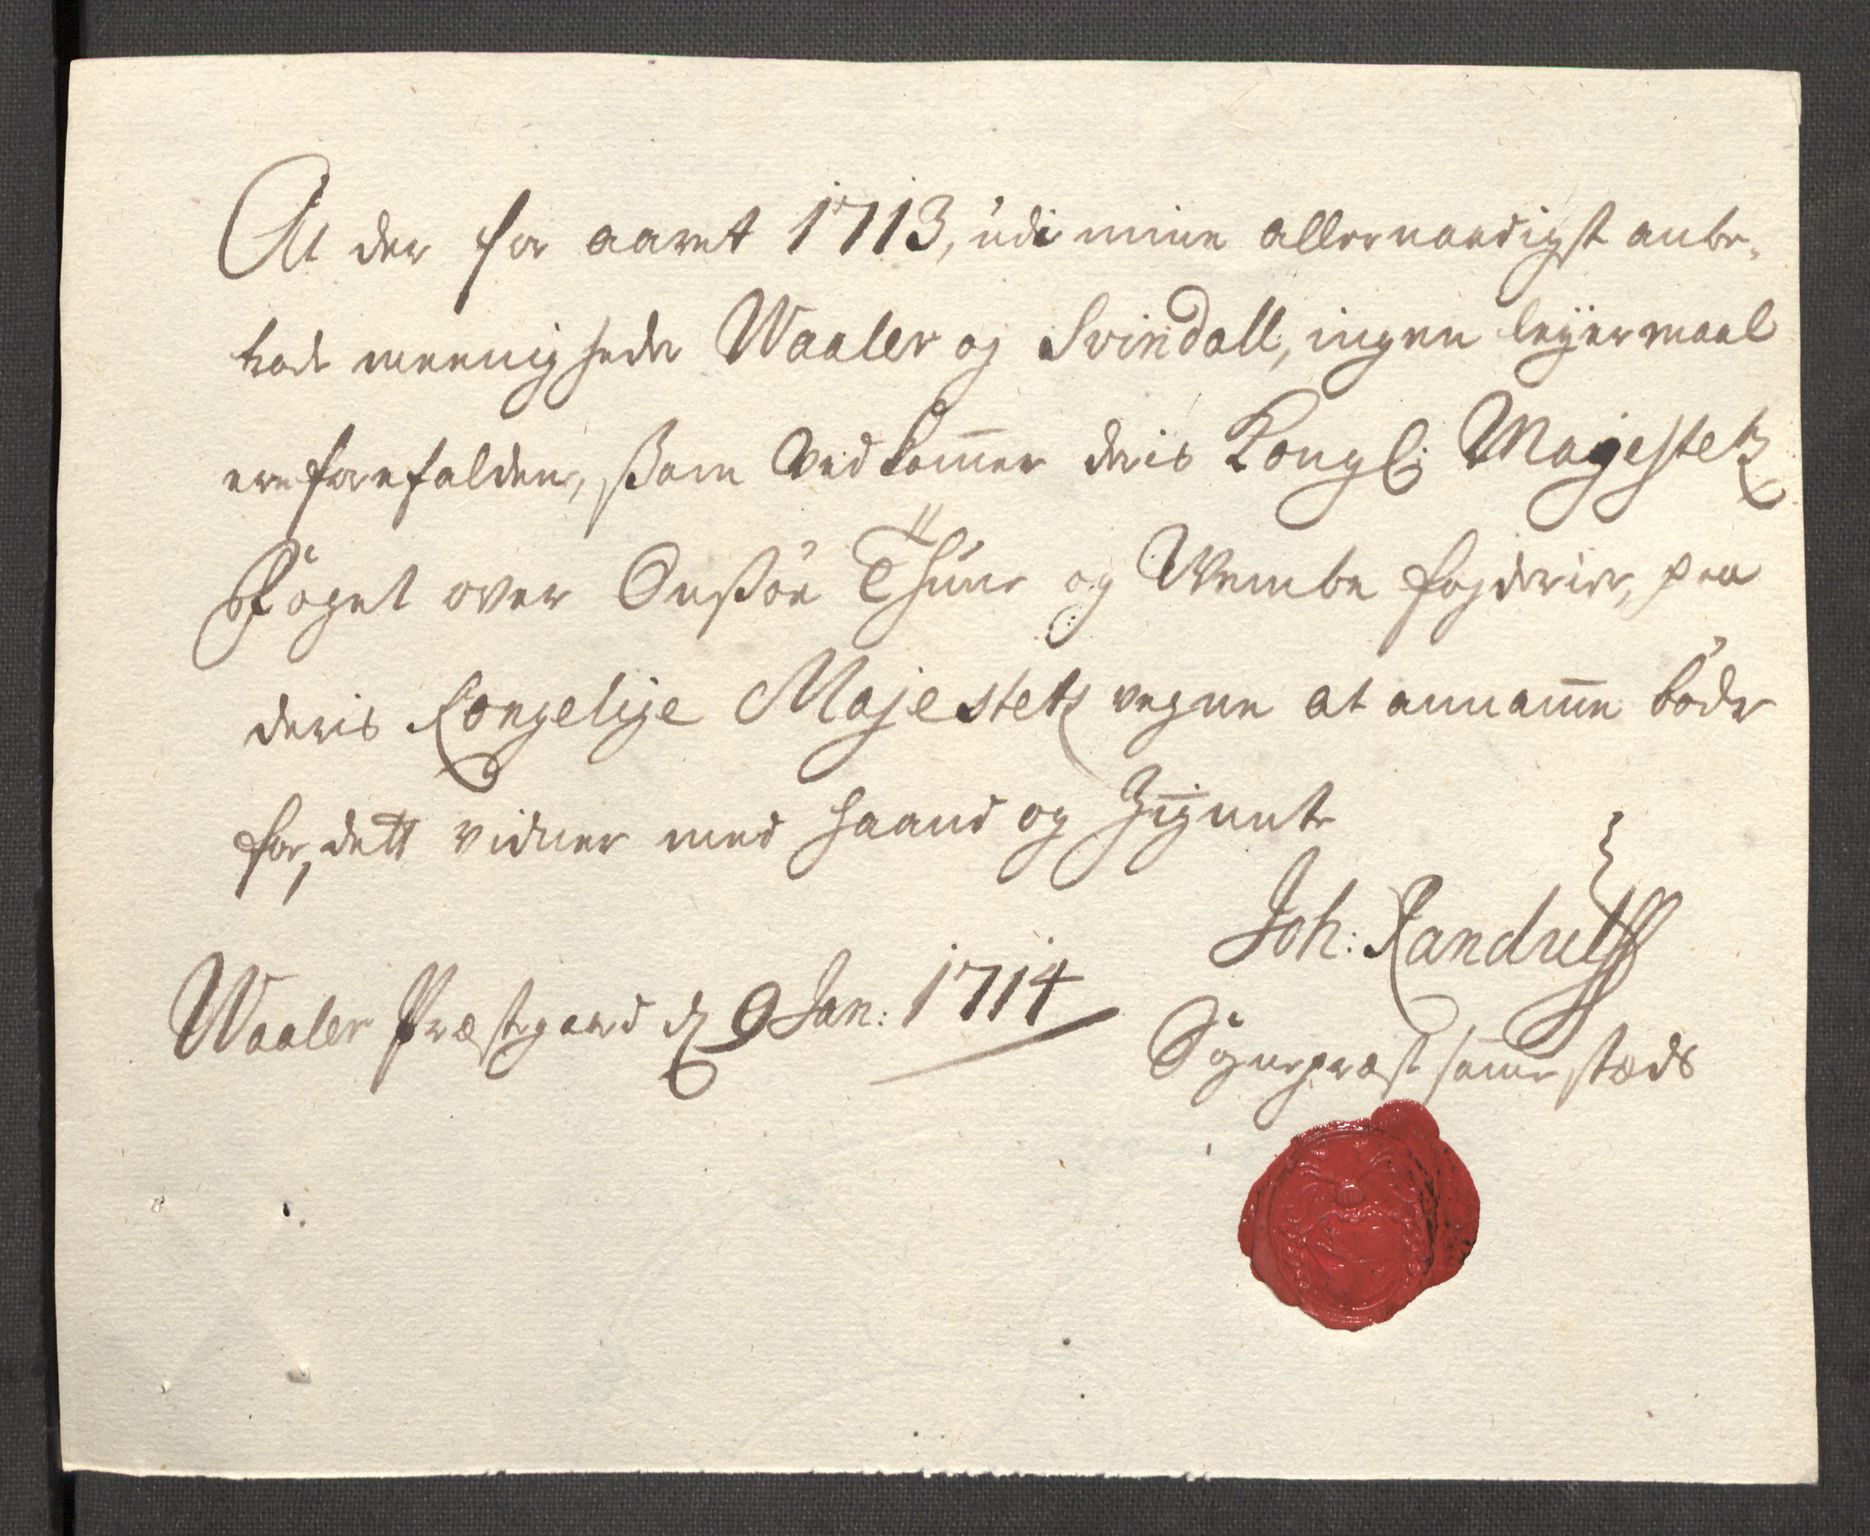 At der for aaret 1713, udi mine allernaadigst anbe-
trode meenigheder Waaler og Svindall, ingen leyermaal
ere forefalden, ßom vedkommer deris Kongl: Majestetz
Foget over Onßøe Thune og Wembe fogderier, paa
deris Kongelige Majestetz vegne at annamme bøder
for, dett vidner med haand og Zignete
Joh: Randulff
Waaler Præstegaard d 9 Jan: 1714
Sognepræst sammestæds